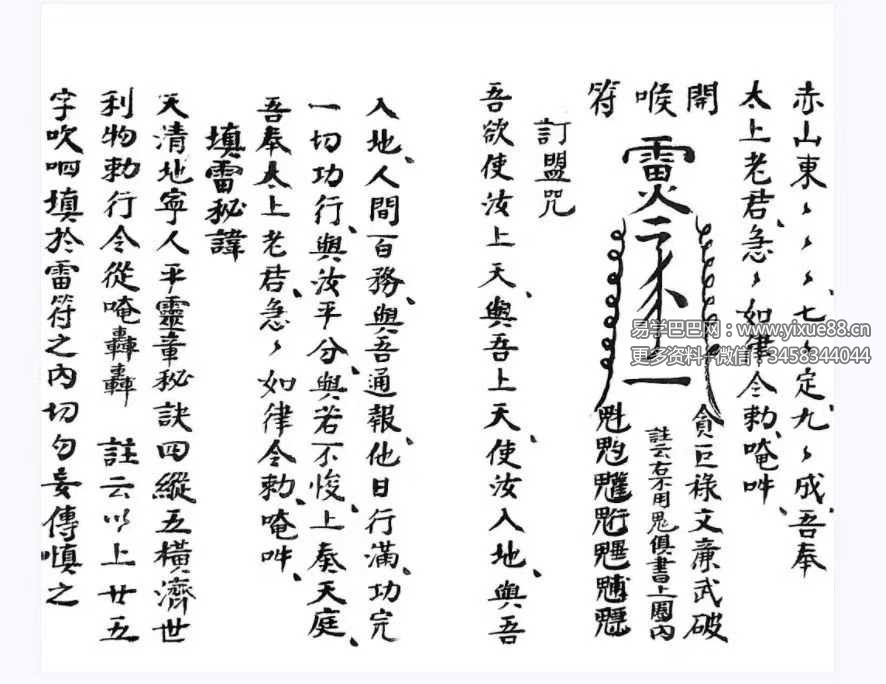 赤山東〻〻〻、七〻定九〻成、吾奉
太上老君、急〻如律令勅、唵吽、
開喉符
雷火
貪巨祿文廉武破
註云右不用鬼俱書上圈內
訂盟咒
吾欲使汝上天、與吾上天、使汝入地、與吾
入地、人間百務、與吾通報、他日行滿、功完
一切功行、與汝平分、與若不悛、上奏天庭、
吾奉太上老君、急〻如律令勅、唵吽、
填雷秘諱
天清地寧人平靈章秘訣四縱五橫濟世
利物勅行令從唵轟轟 註云以上廿五
字吹呬填於雷符之內切勿妄傳慎之
易学巴巴网：www.yixue88.cn
更多资料，微信：3458344044